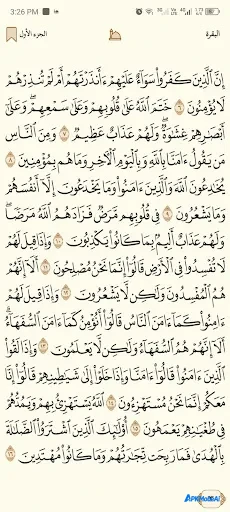 3:26 PM
البقرة
الجزء الأول
إِنَّ ٱلَّذِينَ كَفَرُوا۟ سَوَآءٌ عَلَيْهِمْ ءَأَنذَرْتَهُمْ أَمْ لَمْ تُنذِرْهُمْ
لَا يُؤْمِنُونَ ٦ خَتَمَ ٱللَّهُ عَلَىٰ قُلُوبِهِمْ وَعَلَىٰ سَمْعِهِمْ ۖ وَعَلَىٰٓ
أَبْصَٰرِهِمْ غِشَٰوَةٌ ۖ وَلَهُمْ عَذَابٌ عَظِيمٌ ٧ وَمِنَ ٱلنَّاسِ
مَن يَقُولُ ءَامَنَّا بِٱللَّهِ وَبِٱلْيَوْمِ ٱلْءَاخِرِ وَمَا هُم بِمُؤْمِنِينَ ٨
يُخَٰدِعُونَ ٱللَّهَ وَٱلَّذِينَ ءَامَنُوا۟ وَمَا يَخْدَعُونَ إِلَّآ أَنفُسَهُمْ
وَمَا يَشْعُرُونَ ٩ فِى قُلُوبِهِم مَّرَضٌ فَزَادَهُمُ ٱللَّهُ مَرَضًا ۖ
وَلَهُمْ عَذَابٌ أَلِيمٌۢ بِمَا كَانُوا۟ يَكْذِبُونَ ١٠ وَإِذَا قِيلَ لَهُمْ
لَا تُفْسِدُوا۟ فِى ٱلْأَرْضِ قَالُوٓا۟ إِنَّمَا نَحْنُ مُصْلِحُونَ ١١ أَلَآ إِنَّهُمْ
هُمُ ٱلْمُفْسِدُونَ وَلَٰكِن لَّا يَشْعُرُونَ ١٢ وَإِذَا قِيلَ لَهُمْ
ءَامِنُوا۟ كَمَآ ءَامَنَ ٱلنَّاسُ قَالُوٓا۟ أَنُؤْمِنُ كَمَآ ءَامَنَ ٱلسُّفَهَآءُ ۗ
أَلَآ إِنَّهُمْ هُمُ ٱلسُّفَهَآءُ وَلَٰكِن لَّا يَعْلَمُونَ ١٣ وَإِذَا لَقُوا۟
ٱلَّذِينَ ءَامَنُوا۟ قَالُوٓا۟ ءَامَنَّا وَإِذَا خَلَوْا۟ إِلَىٰ شَيَٰطِينِهِمْ قَالُوٓا۟ إِنَّا
مَعَكُمْ إِنَّمَا نَحْنُ مُسْتَهْزِءُونَ ١٤ ٱللَّهُ يَسْتَهْزِئُ بِهِمْ وَيَمُدُّهُمْ
فِى طُغْيَٰنِهِمْ يَعْمَهُونَ ١٥ أُو۟لَٰٓئِكَ ٱلَّذِينَ ٱشْتَرَوُا۟ ٱلضَّلَٰلَةَ
بِٱلْهُدَىٰ فَمَا رَبِحَت تِّجَٰرَتُهُمْ وَمَا كَانُوا۟ مُهْتَدِينَ ١٦